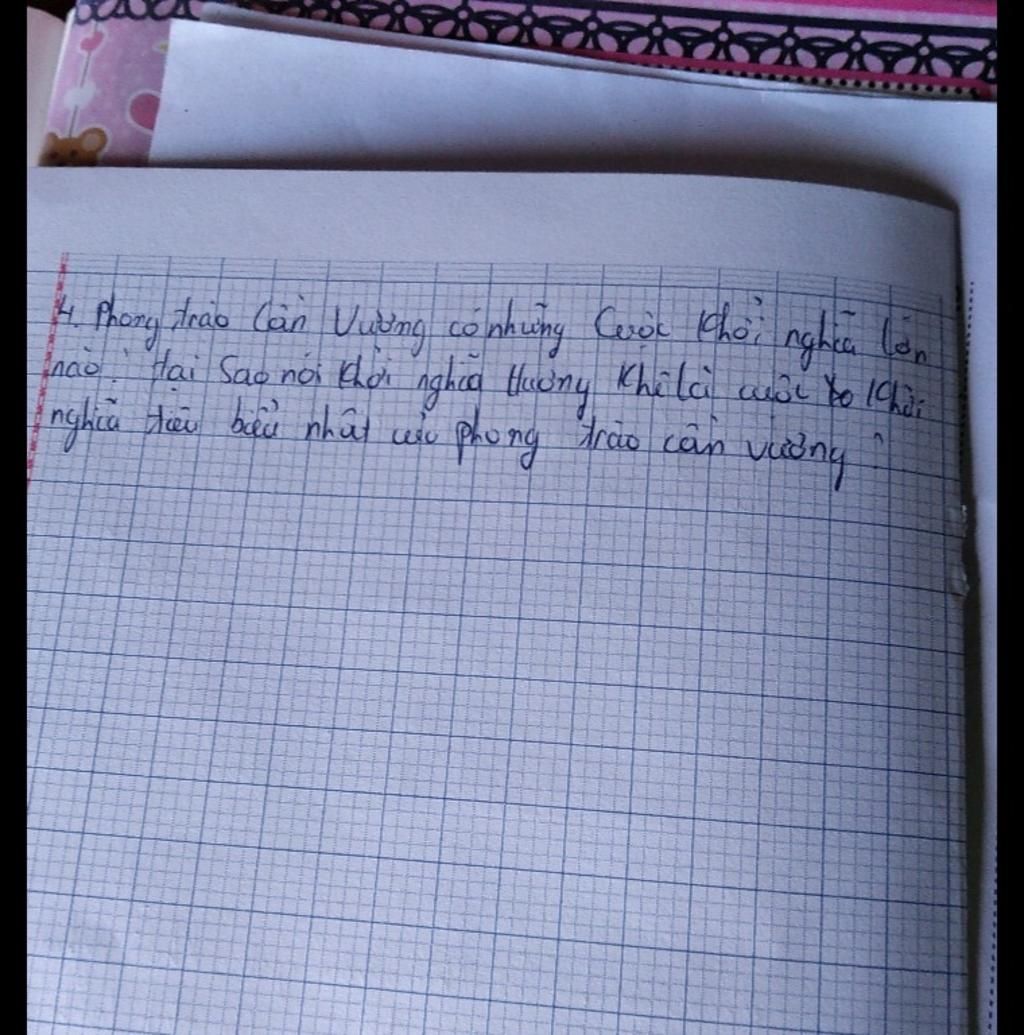 4. Phong trào Cần Vương có những Cuộc khởi nghĩa lớn
nào? tại Sao nói khởi nghĩa Hương Khê là cuộc khởi
nghĩa tiêu biểu nhất của phong trào cần vương?